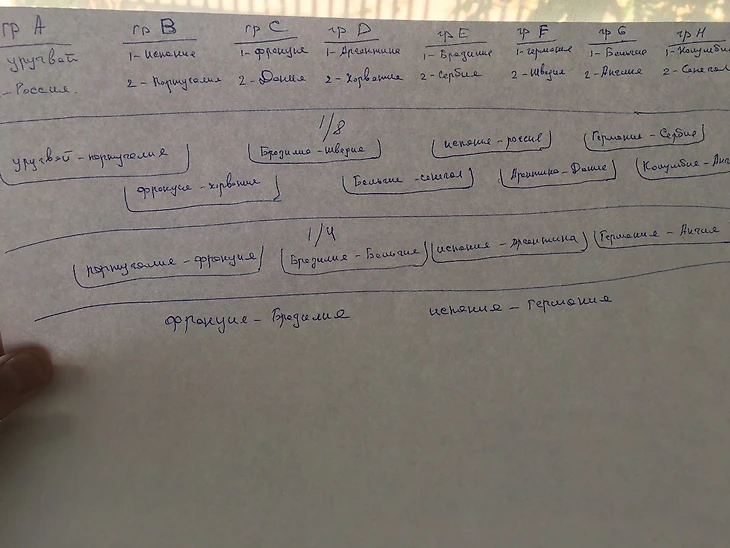 гр A гр B гр C гр D гр E гр F гр G гр H
уругвай 1- Испания 1- Франция 1- Аргентина 1- Бразилия 1- германия 1- Бельгия 1- Колумби
- Россия. 2 - Португалия 2 - Дания 2 - Хорватия 2 - Сербия 2 - Швеция 2 - Англия 2 - Сенегал
1/8
уругвай - португалия Бразилия - швеция испания - россия Германия - Сербия
франция - хорватия Бельгия - сенегал Аргентина - Дания Колумбия - Анг
1/4
португалия - франция Бразилия - Бельгия испания - аргентина Германия - Англия
франция - Бразилия испания - Германия